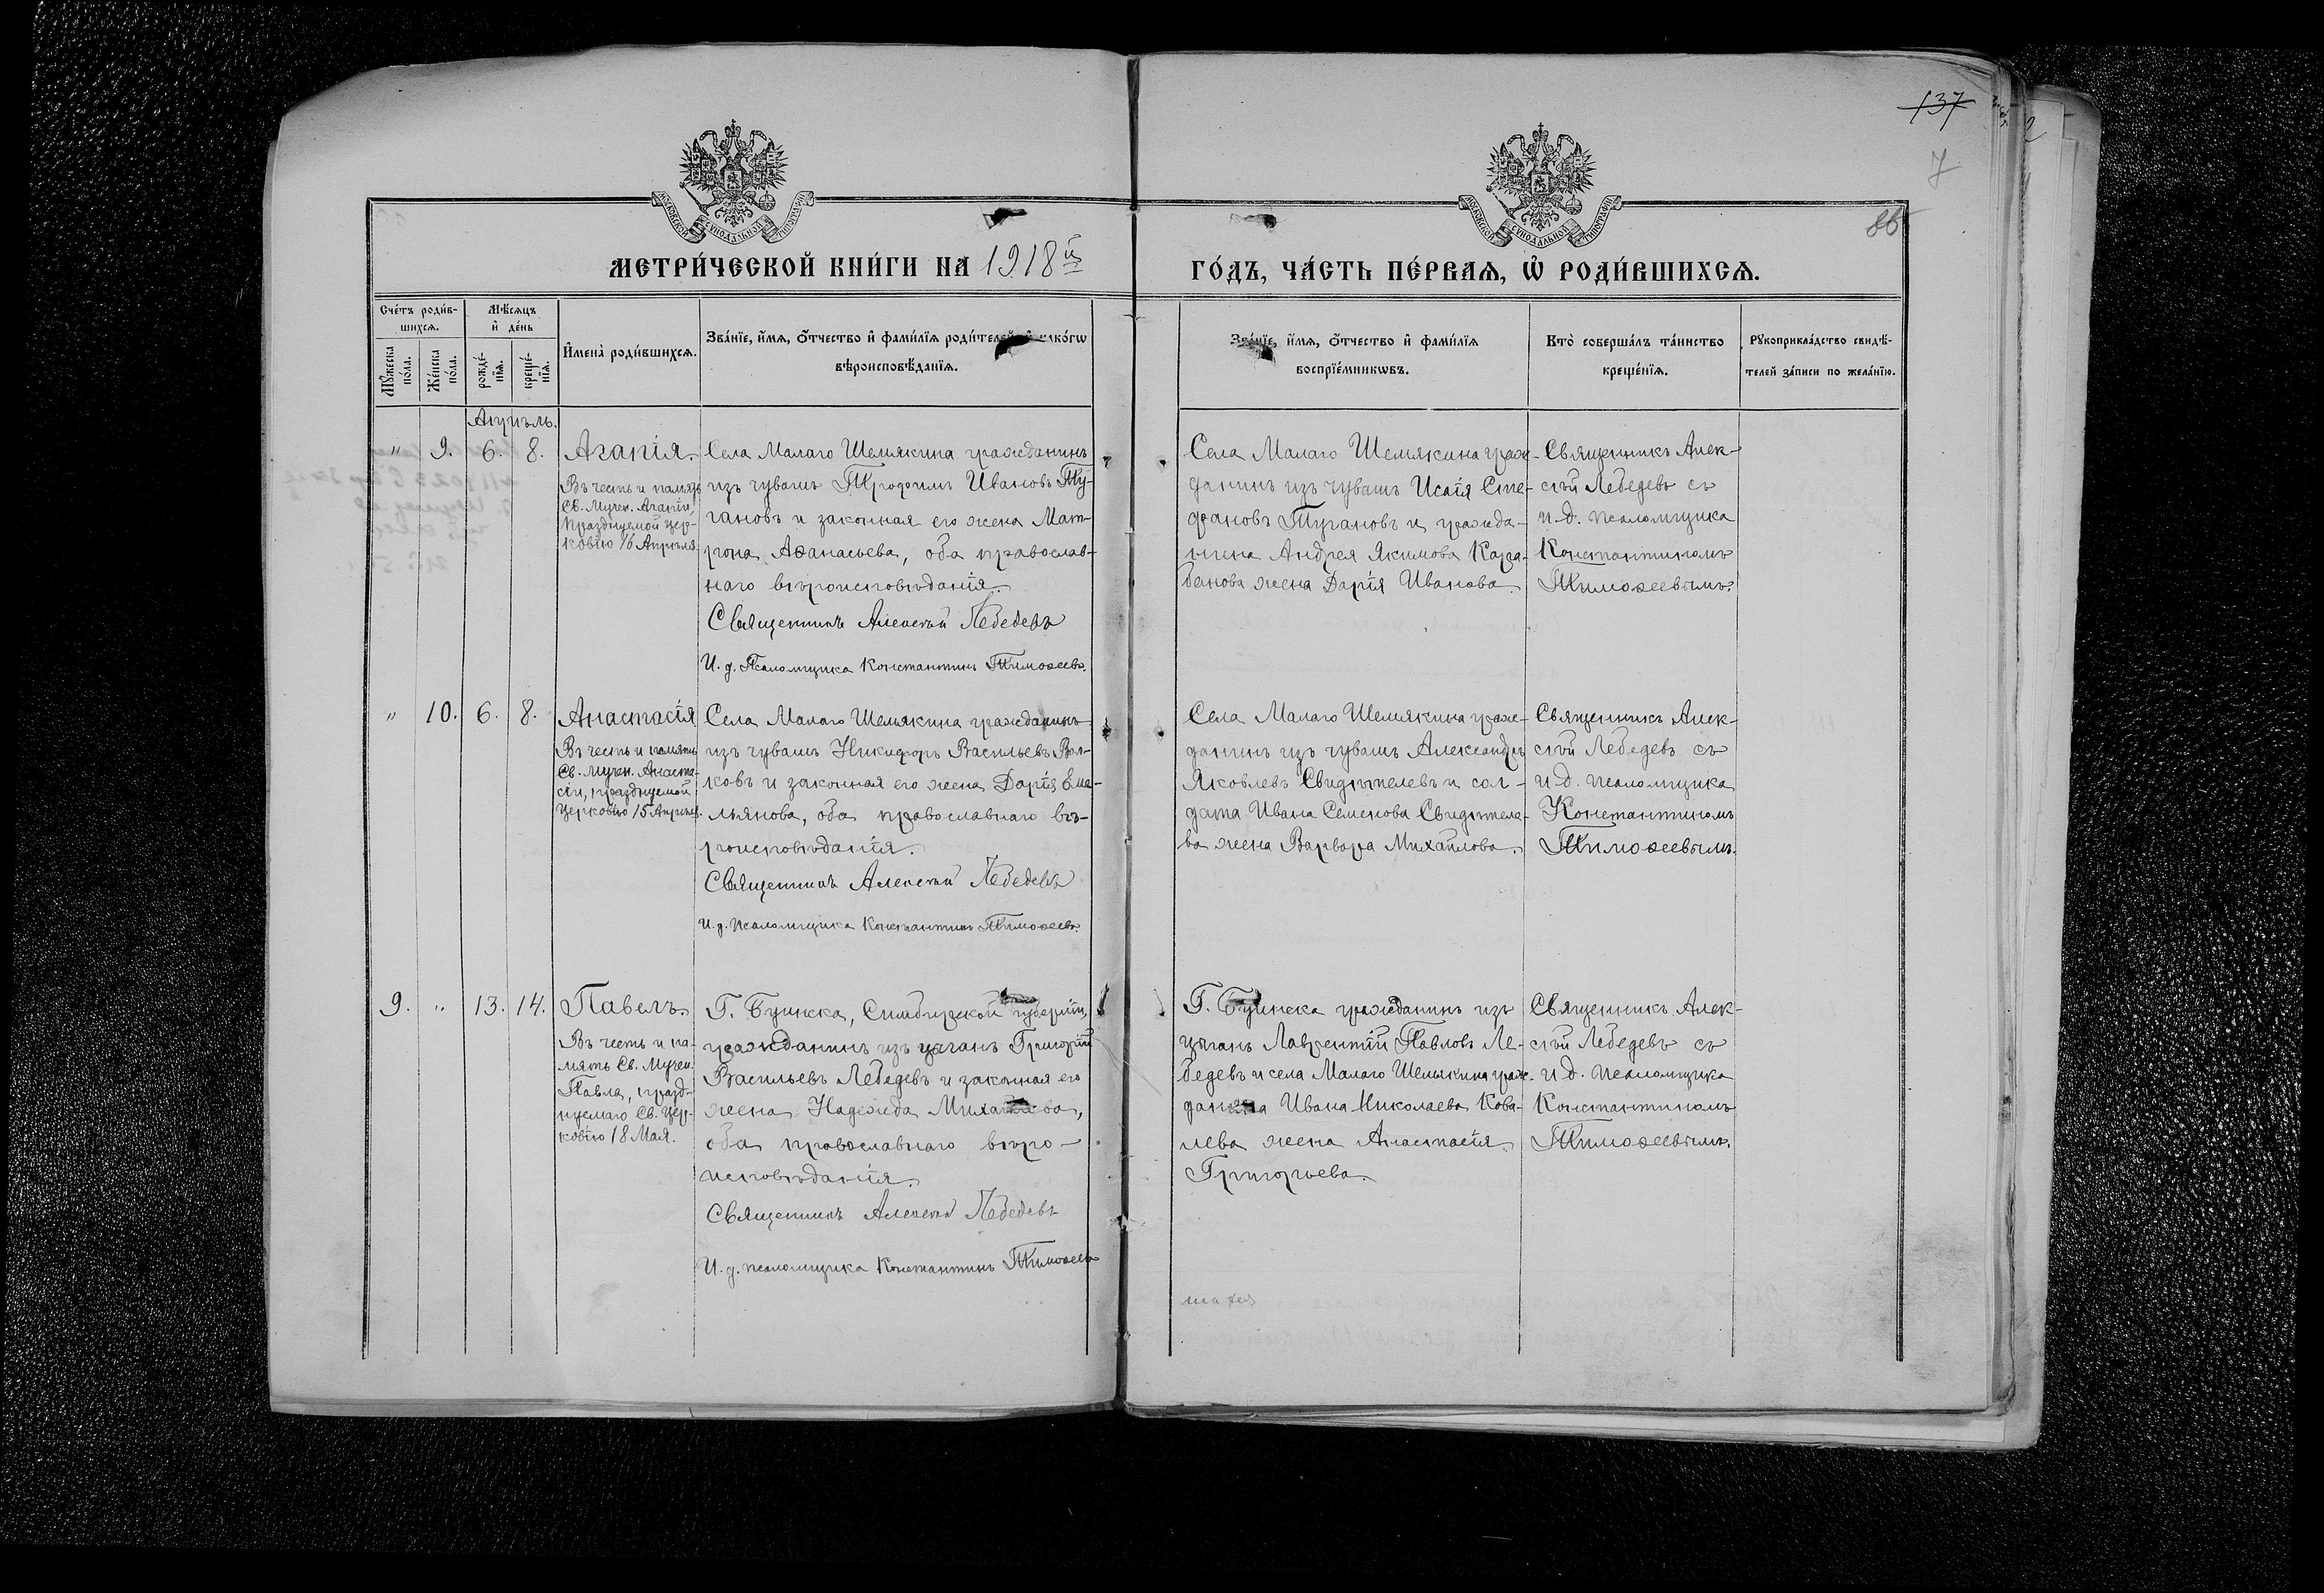 137
7
86
МОСКОВСКОЙ СѴНОДАЛЬНОЙ ТИПОГРАФІИ
МОСКОВСКОЙ СѴНОДАЛЬНОЙ ТИПОГРАФІИ
МЕТРИ́ЧЕСКОЙ КНИ́ГИ НА 1918й
ГО́ДЪ, ЧА́СТЬ ПЕ́РВАѦ, Ѡ РОДИ́ВШИХСѦ.
Сче́тъ роди́в-
шихсѧ.
Мꙋ́жеска
по́ла.
Же́нска
по́ла.
Мѣ́сѧцъ
и҆ де́нь
рожде́-
нїѧ.
креще́-
нїѧ.
И҆мена̀ роди́вшихсѧ.
Зва́нїе, и҆́мѧ, ѻ҆́тчество и҆ фами́лїѧ роди́телей, и҆ како́гѡ
вѣроисповѣ́данїѧ.
Зва́нїе, и҆́мѧ, ѻ҆́тчество и҆ фами́лїѧ
воспрїе́мникѡвъ.
Кто̀ соверша́лъ та́инство
креще́нїѧ.
Рꙋкоприкла́дство свидѣ́-
телей за́писи по жела́нїю.
Апрѣль.
" 9. 6. 8.
Агапія.
Въ честь и память
Св. Мучен. Агапіи,
празднуемой цер-
ковію 16 Апрѣля.
Села Малаго Шемякина гражданинъ
изъ чувашъ Трофимъ Ивановъ Ту-
гановъ и законная его жена Мат-
рона Аѳанасьева, оба православ-
наго вѣроисповѣданія.
Священникъ Алексѣй Лебедевъ
И. д. Псаломщика Константинъ Тимоѳеевъ.
Села Малаго Шемякина граж-
данинъ изъ чувашъ Исаія Сте-
фановъ Тугановъ и гражда-
нина Андрея Якимова Кара-
банова жена Дарія Иванова.
Священникъ Алек-
сѣй Лебедевъ съ
и. д. псаломщика
Константиномъ
Тимоѳеевымъ.
" 10. 6. 8.
Анастасія
Въ честь и память
Св. Мучен. Анаста-
сіи, празднуемой
Церковію 15 Апрѣля.
Села Малаго Шемякина гражданинъ
изъ чувашъ Никифоръ Васильевъ Вол-
ковъ и законная его жена Дарія Еме-
льянова, оба православнаго вѣ-
роисповѣданія.
Священникъ Алексѣй Лебедевъ
И. д. псаломщика Константинъ Тимоѳеевъ.
Села Малаго Шемякина граж-
данинъ изъ чувашъ Александръ
Яковлевъ Свидѣтелевъ и сол-
дата Ивана Семенова Свидѣтеле-
ва жена Варвара Михайлова.
Священникъ Алек-
сѣй Лебедевъ съ
и. д. псаломщика
Константиномъ
Тимоѳеевымъ.
9. " 13. 14.
Павелъ.
Въ честь и па-
мять Св. Мучен.
Павла, празд-
нуемаго Св. Цер-
ковію 18 Мая.
Г. Буинска, Симбирской губерніи,
гражданинъ изъ цыганъ Григорій
Васильевъ Лебедевъ и законная его
жена Надежда Михайлова,
оба православнаго вѣро-
исповѣданія.
Священникъ Алексѣй Лебедевъ
И. д. псаломщика Константинъ Тимоѳеевъ
Г. Буинска гражданинъ изъ
цыганъ Лаврентій Павловъ Ле-
бедевъ и села Малаго Шемякина граж-
данина Ивана Николаева Кова-
лева жена Анастасія
Григорьева.
Священникъ Алек-
сѣй Лебедевъ съ
и. д. псаломщика
Константиномъ
Тимоѳеевымъ.